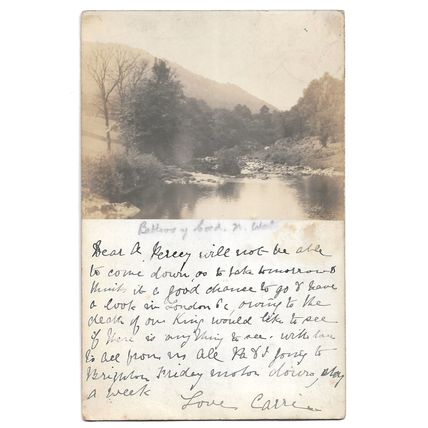 Bettws y Coed. N. Wal
Dear A, Percy will not be able
to come down, as to take tomorrow &
think it a good chance to go & have
a look in London &c, owing to the
death of our King would like to see
if there is anything to see. with love
to all from us all. Pa & I going to
Brighton Friday motor down, stay
a week
Love Carrie